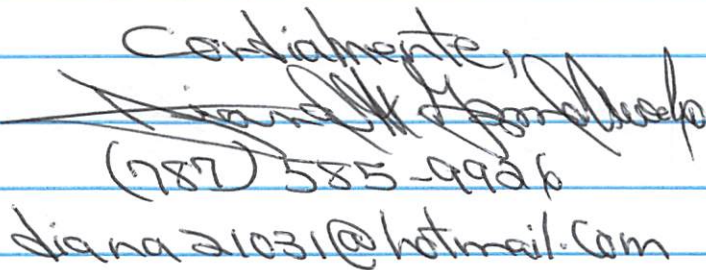 Cordialmente,
Diana M
(787) 585-9926
diana21031@hotmail.com